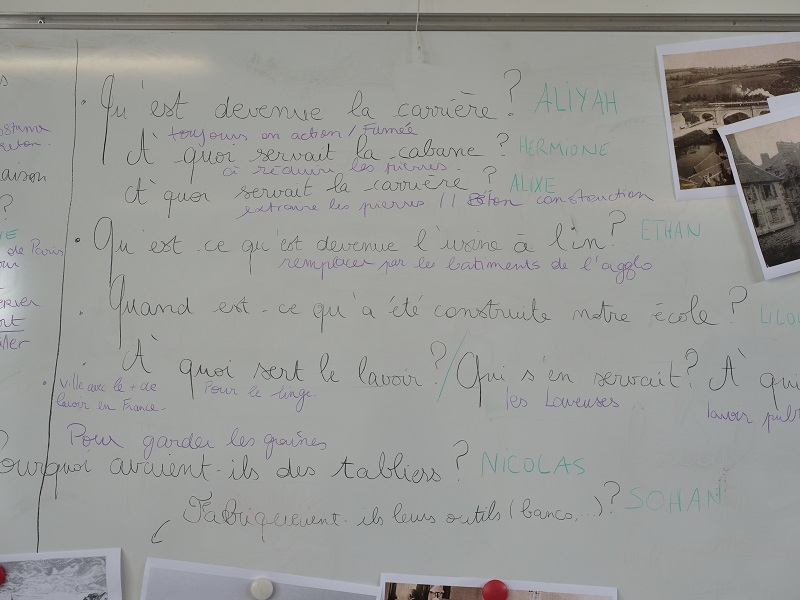 Qu'est devenue la carrière ? ALIYAH
toujours en action / Fumée
À quoi servait la cabane ? HERMIONE
à réduire les pierres.
À quoi servait la carrière ? ALIXE
extraire les pierres // béton construction
Qu'est-ce qu'est devenue l'usine à lin ? ETHAN
remplacer par les batiments de l'agglo
Quand est-ce qu'a été construite notre école ?
À quoi sert le lavoir ? / Qui s'en servait ? À qui
ville avec le + de
lavoir en France.
Pour le linge.
les Laveuses
lavoir
Pour garder les graines
Pourquoi avaient-ils des tabliers ? NICOLAS
Fabriquerent-ils leurs outils (bancs, ...) ? SOHAN
aison
?
de Paris